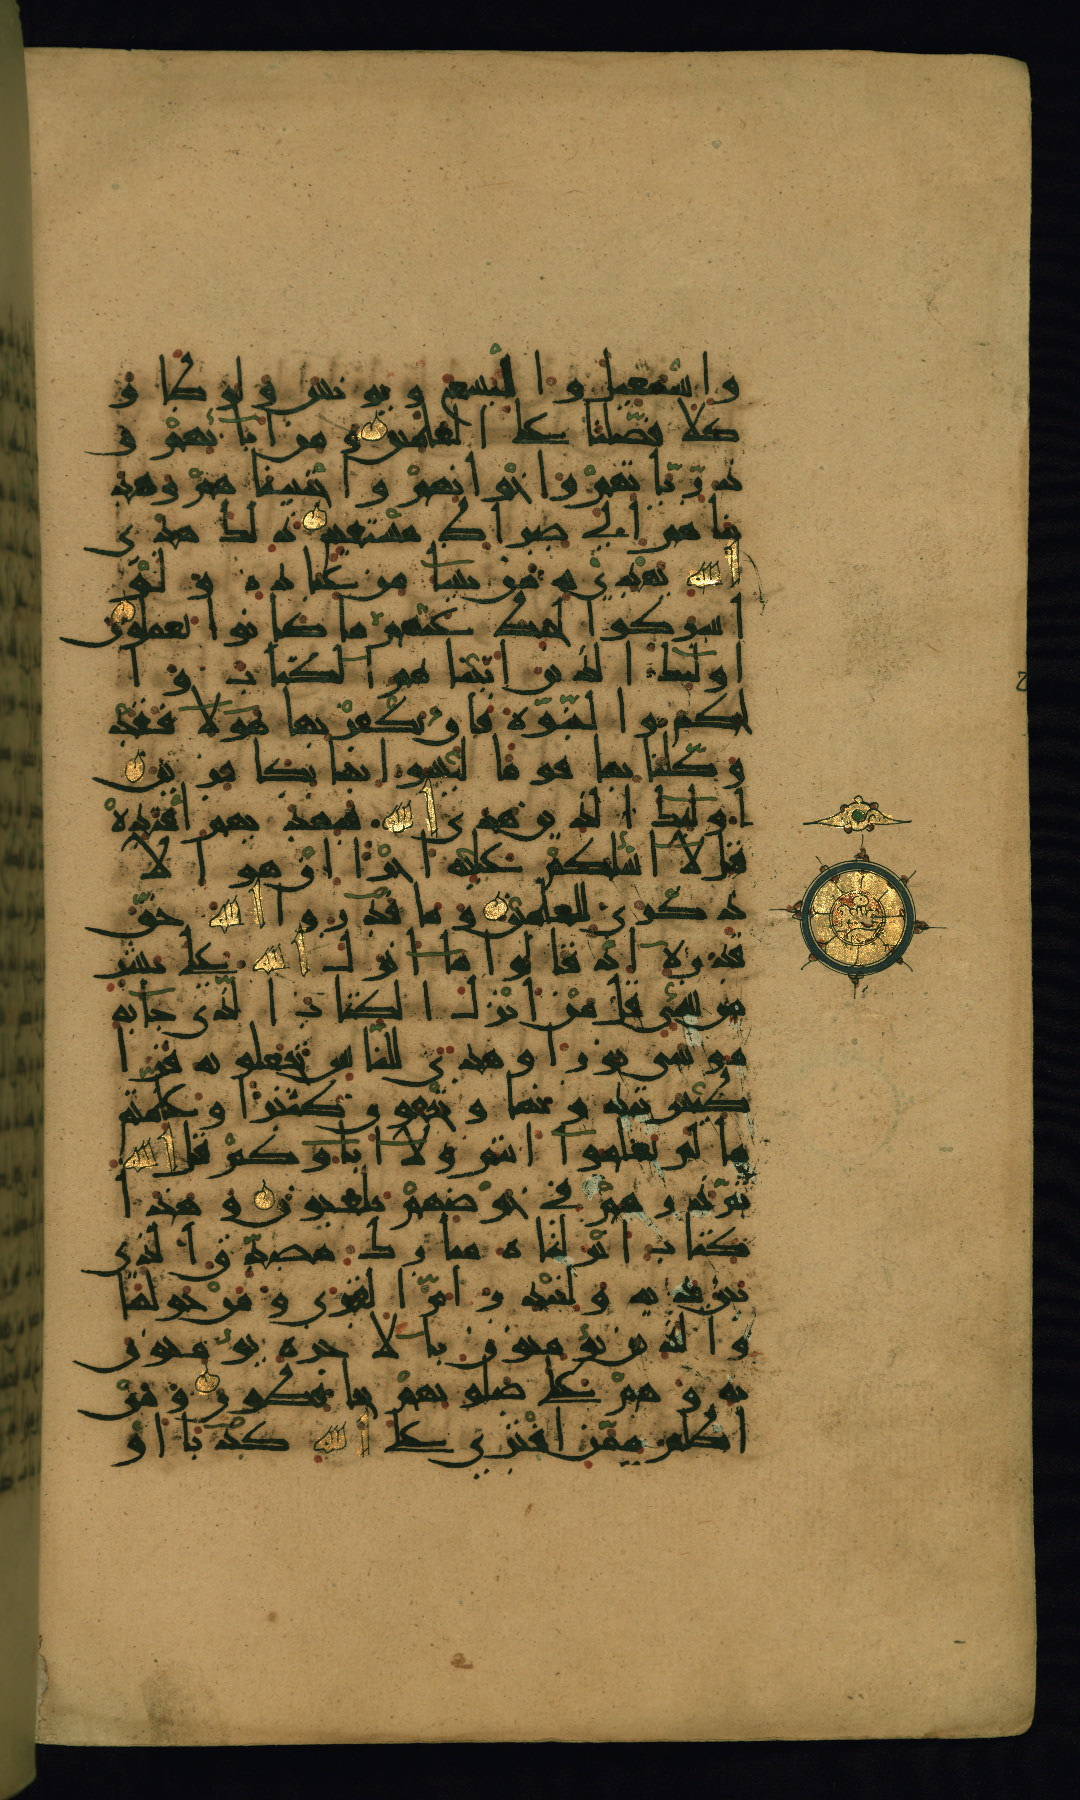 واسمعيل واليسع ويونس ولوطا و
كلا فضلنا على العلمين ومن ابائهم و
ذرياتهم واخوانهم واجتبيناهم وهد
يناهم الى صراط مستقيم ذلك هدى
الله يهدي به من يشا من عباده ولو
اشركوا لحبط عنهم ما كانوا يعملون
اولئك الذين اتيناهم الكتاب وا
لحكم والنبوة فان يكفر بها هولا فقد
وكلنا بها قوما ليسوا بها بكافرين
اولئك الذين هدى الله فبهديهم اقتده
قل لا اسلكم عليه اجرا ان هو الا
ذكرى للعلمين وما قدروا الله حق
قدره اذ قالوا ما انزل الله على بشر
من شي قل من انزل الكتاب الذي جا به
موسى نورا وهدى للناس تجعلونه قرا
طيس تبدونها وتخفون كثيرا وعلمتم
ما لم تعلموا انتم ولا اباوكم قل الله
ثم ذرهم في خوضهم يلعبون وهذا
كتاب انزلناه مبارك مصدق الذي
بين يديه ولتنذر ام القرى ومن حولها
والذين يؤمنون بالاخرة يؤمنون
به وهم على صلوتهم يحافظون ومن
اظلم ممن افترى على الله كذبا او